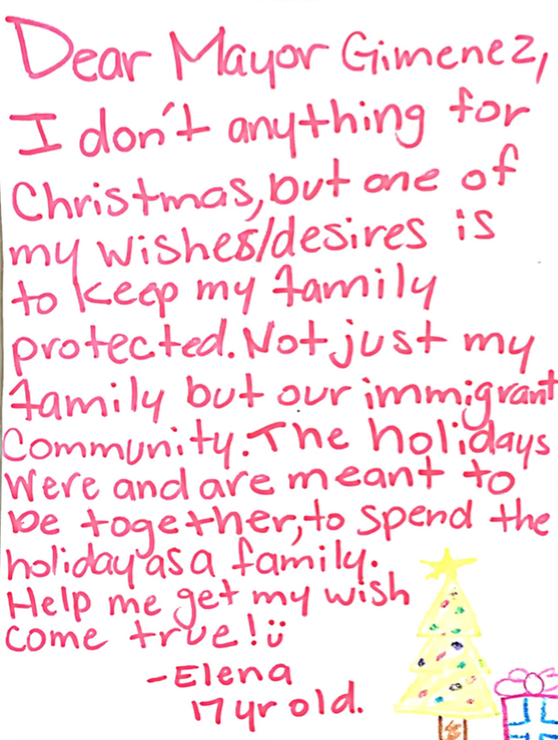 Dear Mayor Gimenez,
I don't anything for
Christmas, but one of
my wishes/desires is
to keep my family
protected. Not just my
family but our immigrant
Community. The holidays
were and are meant to
be together, to spend the
holiday as a family.
Help me get my wish
come true! ü
-Elena
17 yr old.